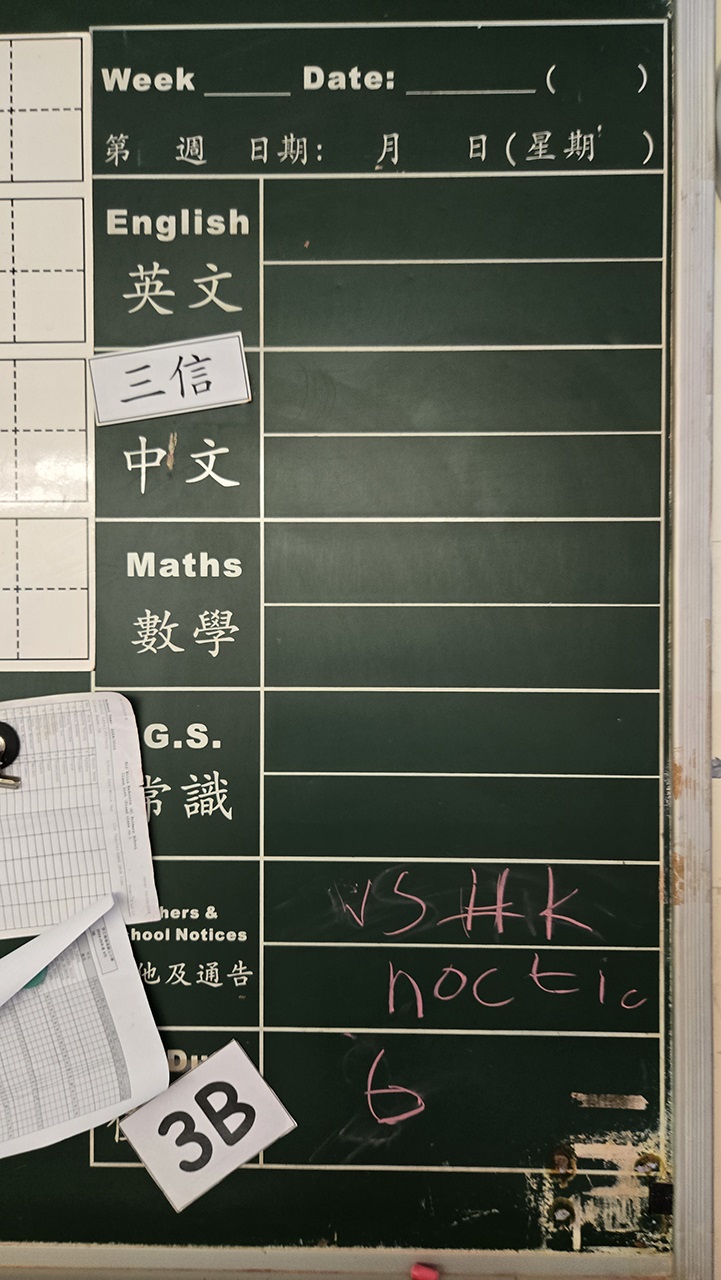 Week ____ Date: ______ ( )
第 週 日期: 月 日(星期 )
English
英文
三信
中文
Maths
數學
G.S.
常識
hers &
hool Notices
他及通告
vs HK
noctic
Du
6
3B